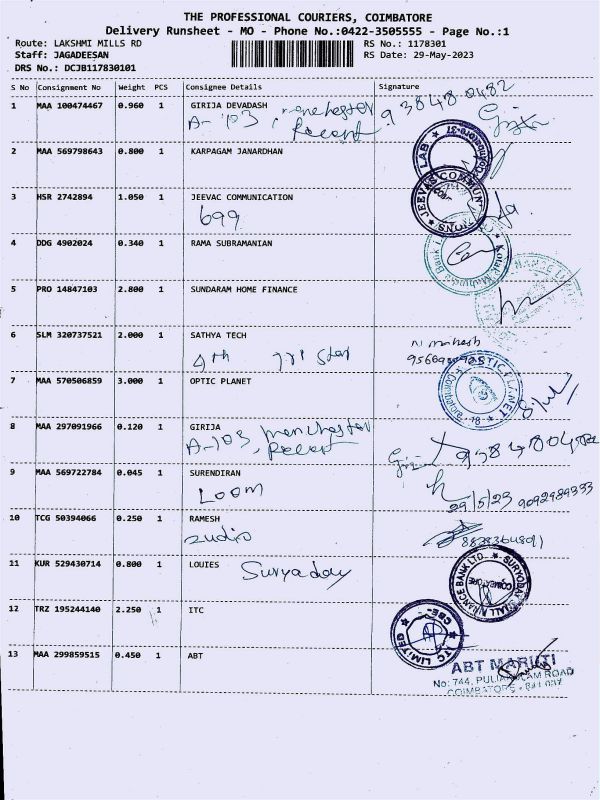 THE PROFESSIONAL COURIERS, COIMBATORE
Delivery Runsheet - MO - Phone No.:0422-3505555 - Page No.:1
Route: LAKSHMI MILLS RD RS No.: 1178301
Staff: JAGADEESAN RS Date: 29-May-2023
DRS No.: DCJB117830101
S No Consignment No Weight PCS Consignee Details Signature
1 MAA 100474467 0.960 1 GIRIJA DEVADASH
A-103, manchester 9384804
2 MAA 569798643 0.800 1 KARPAGAM JANARDHAN
LAB
3 HSR 2742894 1.050 1 JEEVAC COMMUNICATION
699
JEEVAS COMMUNICATIONS
4 DDG 4902024 0.340 1 RAMA SUBRAMANIAN
Kotak Mahindra Bank
5 PRO 14847103 2.800 1 SUNDARAM HOME FINANCE
6 SLM 320737521 2.000 1 SATHYA TECH
4th
7 MAA 570506859 3.000 1 OPTIC PLANET
8 MAA 297091966 0.120 1 GIRIJA
A-103, manchester
9 MAA 569722784 0.045 1 SURENDIRAN
LOOM 29/5/23
10 TCG 50394066 0.250 1 RAMESH
zudio
11 KUR 529430714 0.800 1 LOUIES
Suryaday
SURYODAY SMALL FINANCE BANK LTD.
COIMBATORE
12 TRZ 195244140 2.250 1 ITC
ITC LIMITED
CBE
13 MAA 299859515 0.450 1 ABT
ABT MARUTI
No: 744, PULIAKULAM ROAD
COIMBATORE